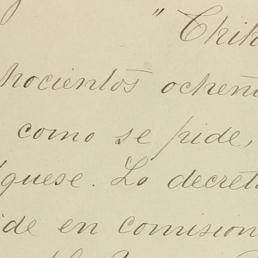 " Chih
hocientos ochen
como se pide,
quese. Lo decret
ide en comision